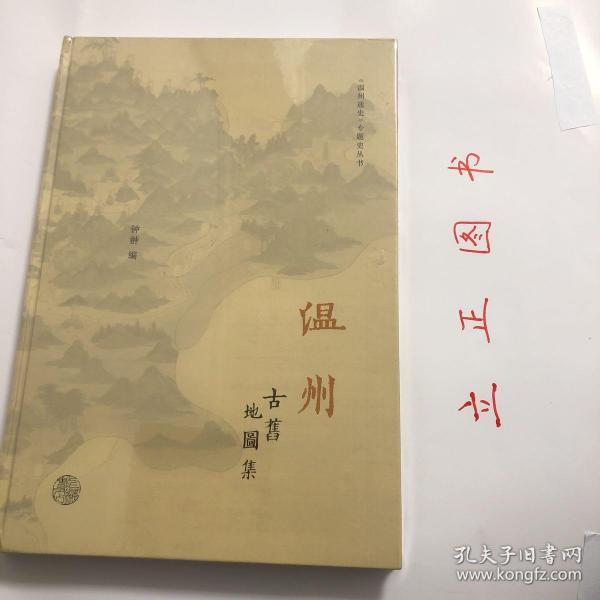 《温州通史》专题史丛书
钟翀 编
温州
古舊
地圖集
立正图书
孔夫子旧书网
www.kongfz.com